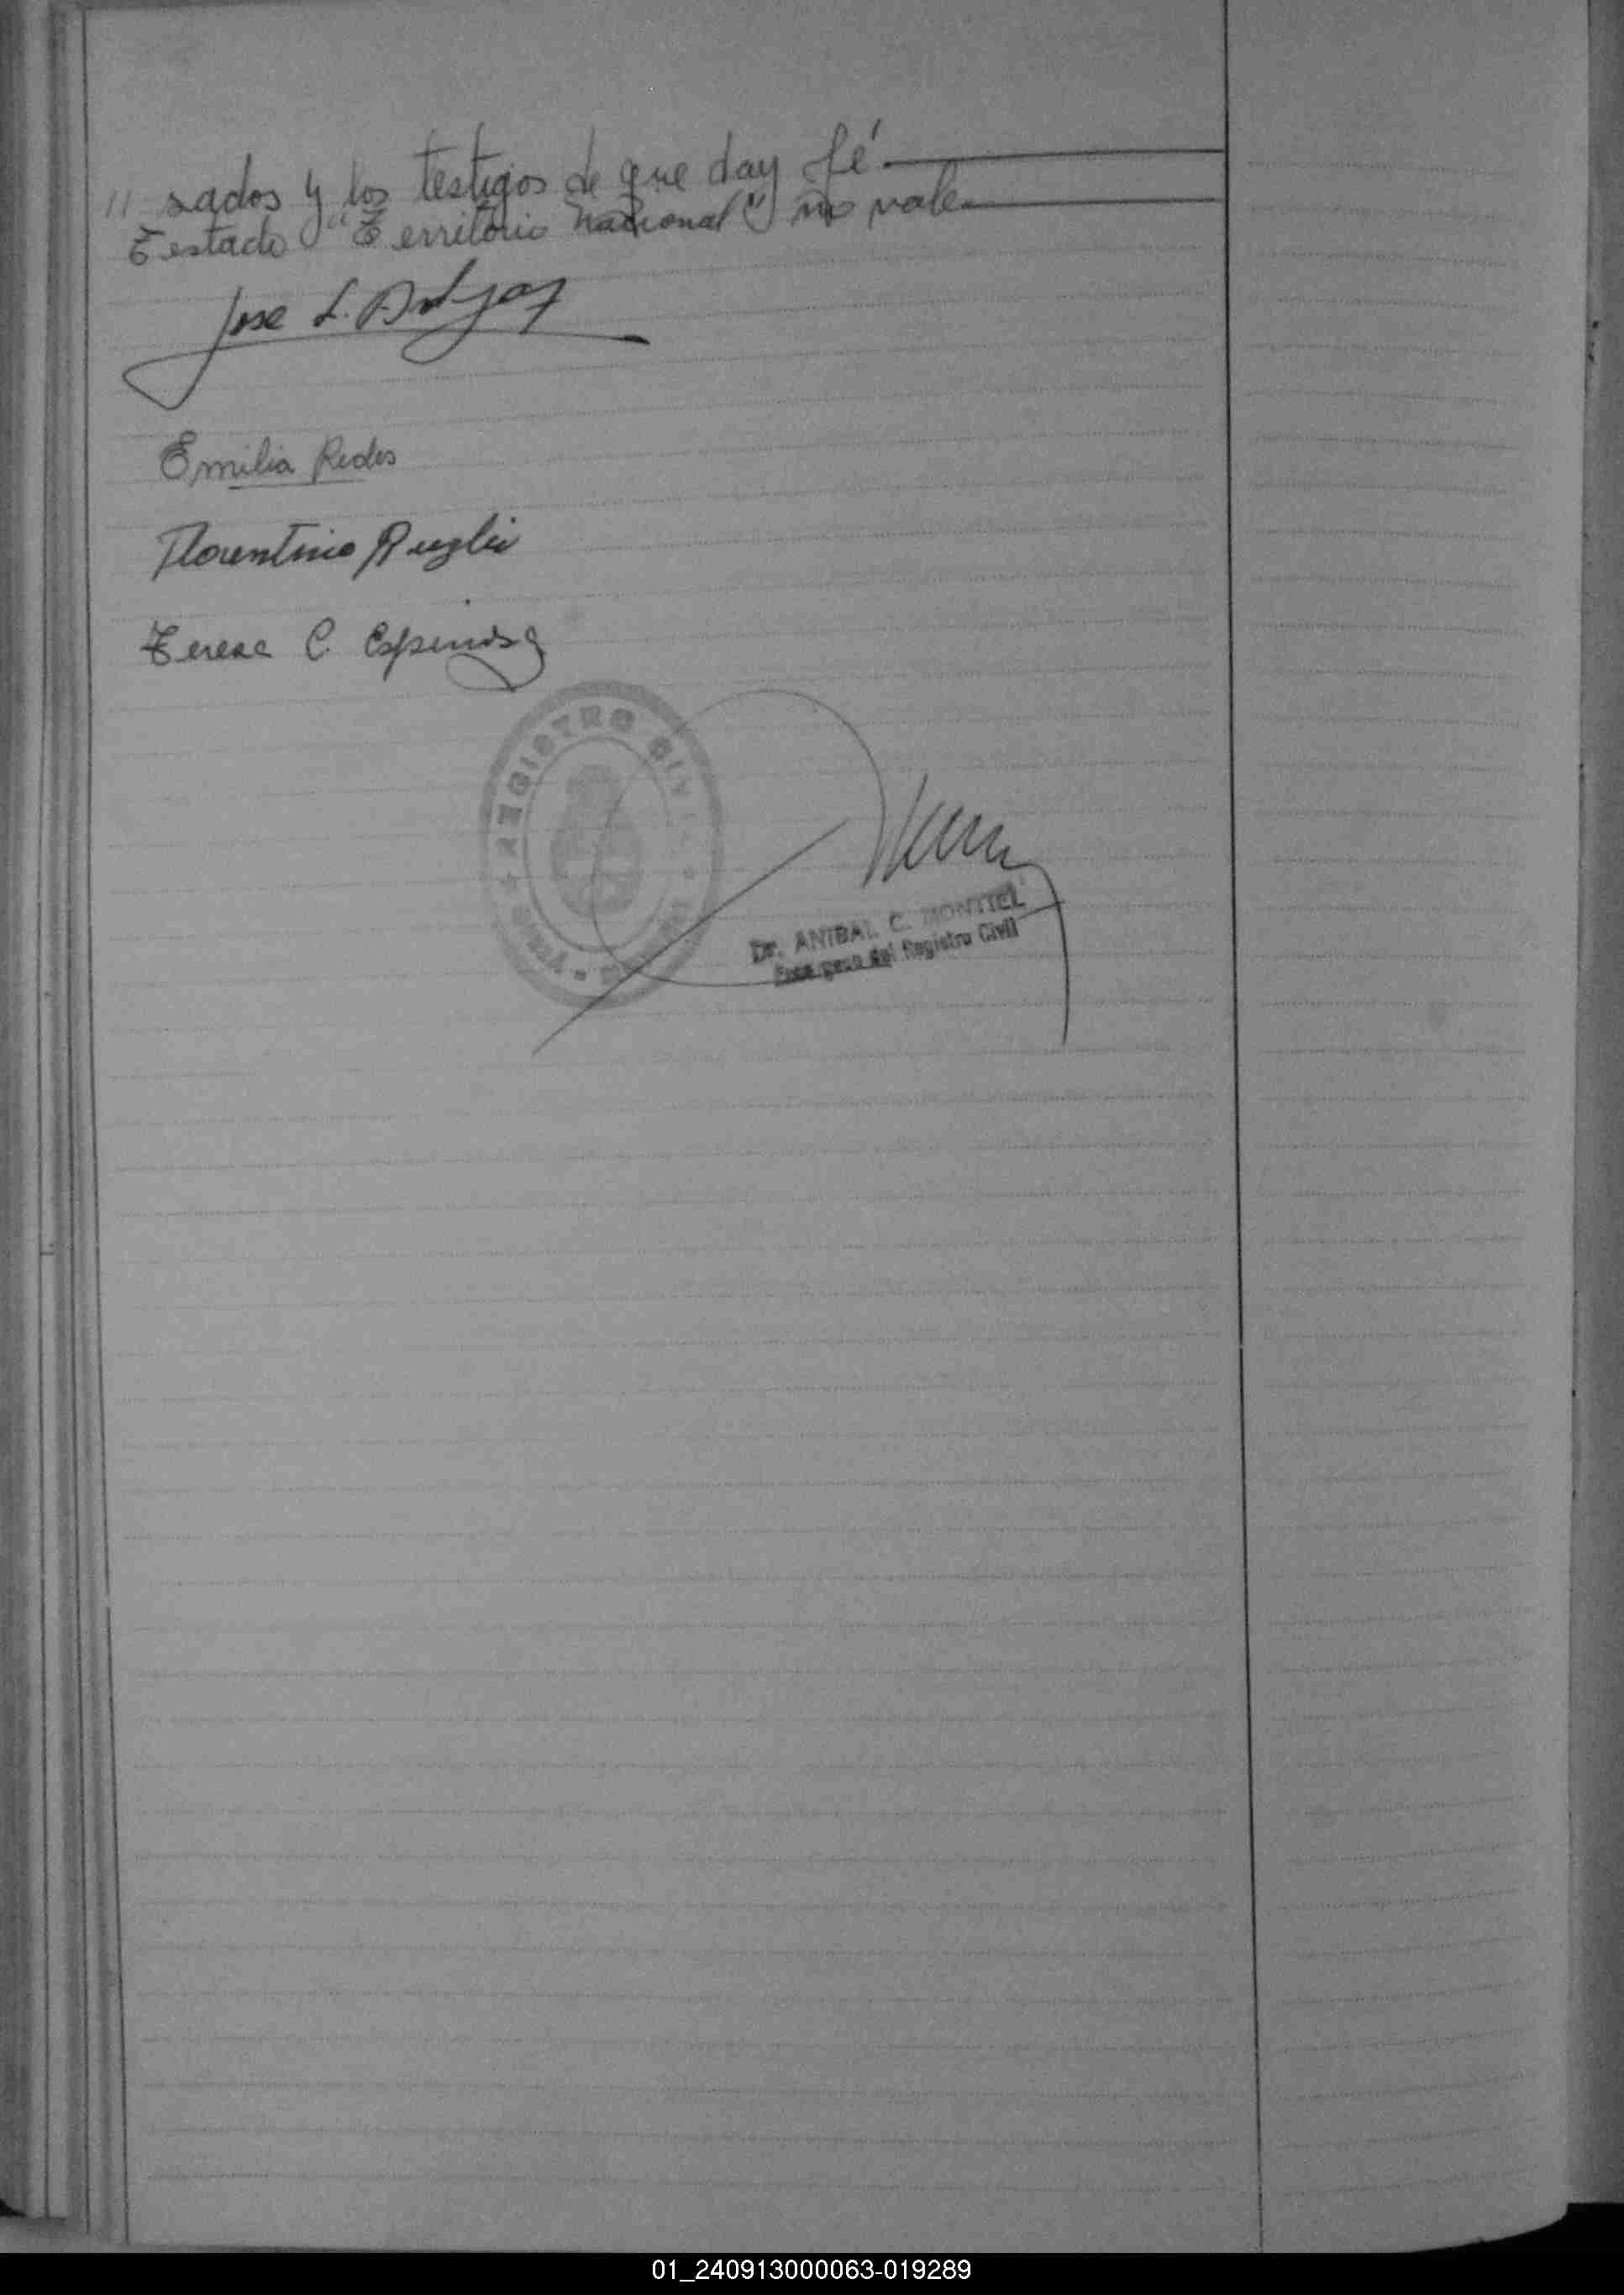 // sados y los testigos de que doy fé
Testado "Territorio Nacional" no vale
Jose L.
Emilia Redes
Florentino
Teresa C. Espinosa
REGISTRO CIVIL
Dr. ANIBAL C. MONTIEL
Encargado del Registro Civil
01_240913000063-019289